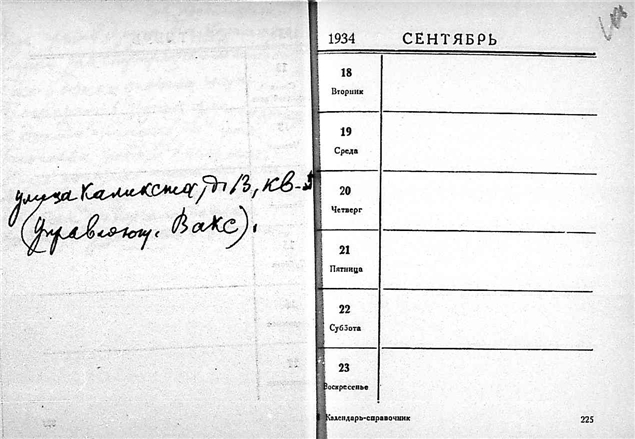 улица Каликста, д 13, кв-5
(Управляющ. Вакс).
1934 СЕНТЯБРЬ
18
Вторник
19
Среда
20
Четверг
21
Пятница
22
Суббота
23
Воскресенье
Календарь-справочник
225